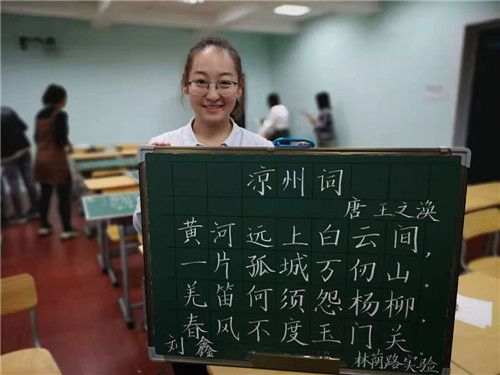 凉州词
唐 王之涣
黄河远上白云间，
一片孤城万仞山。
羌笛何须怨杨柳，
春风不度玉门关。
刘鑫
林荫路实验